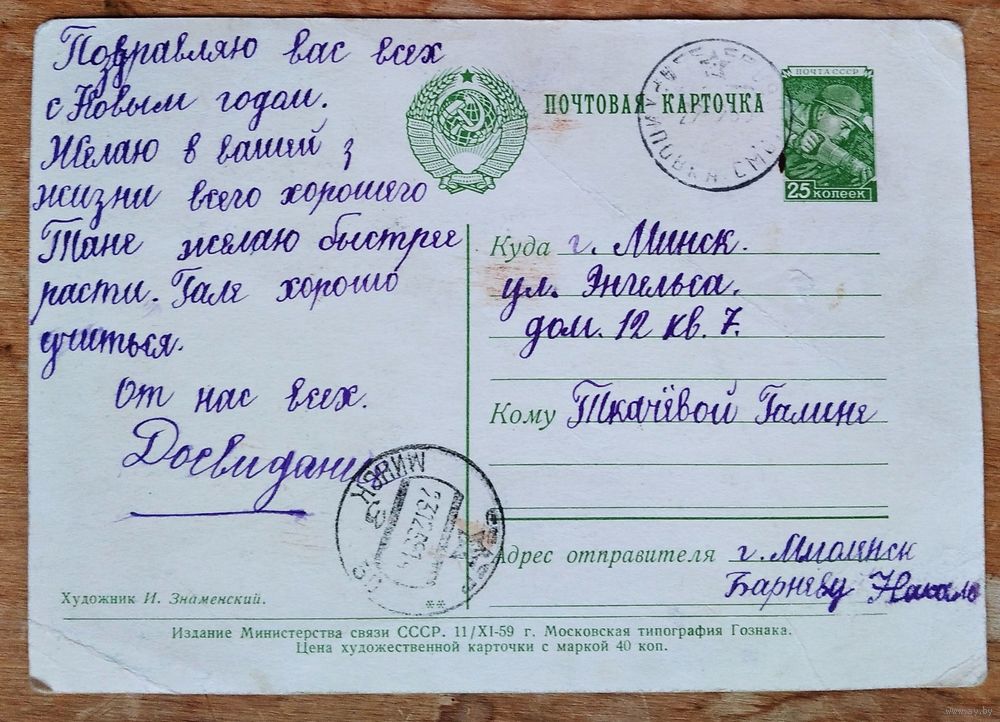 Поздравляю вас всех
с Новым годом.
Желаю в вашей
жизни всего хорошего
Тане желаю быстрее
расти. Гале хорошо
учиться.
От нас всех.
Досвидания
Художник И. Знаменский.
ПОЧТОВАЯ КАРТОЧКА
ПОЧТА СССР
25 КОПЕЕК
Куда г. Минск.
ул. Энгельса.
дом. 12 кв. 7.
Кому Ткачёвой Галине
МИНСК 3
Адрес отправителя г.
**
Издание Министерства связи СССР. 11/XI-59 г. Московская типография Гознака.
Цена художественной карточки с маркой 40 коп.